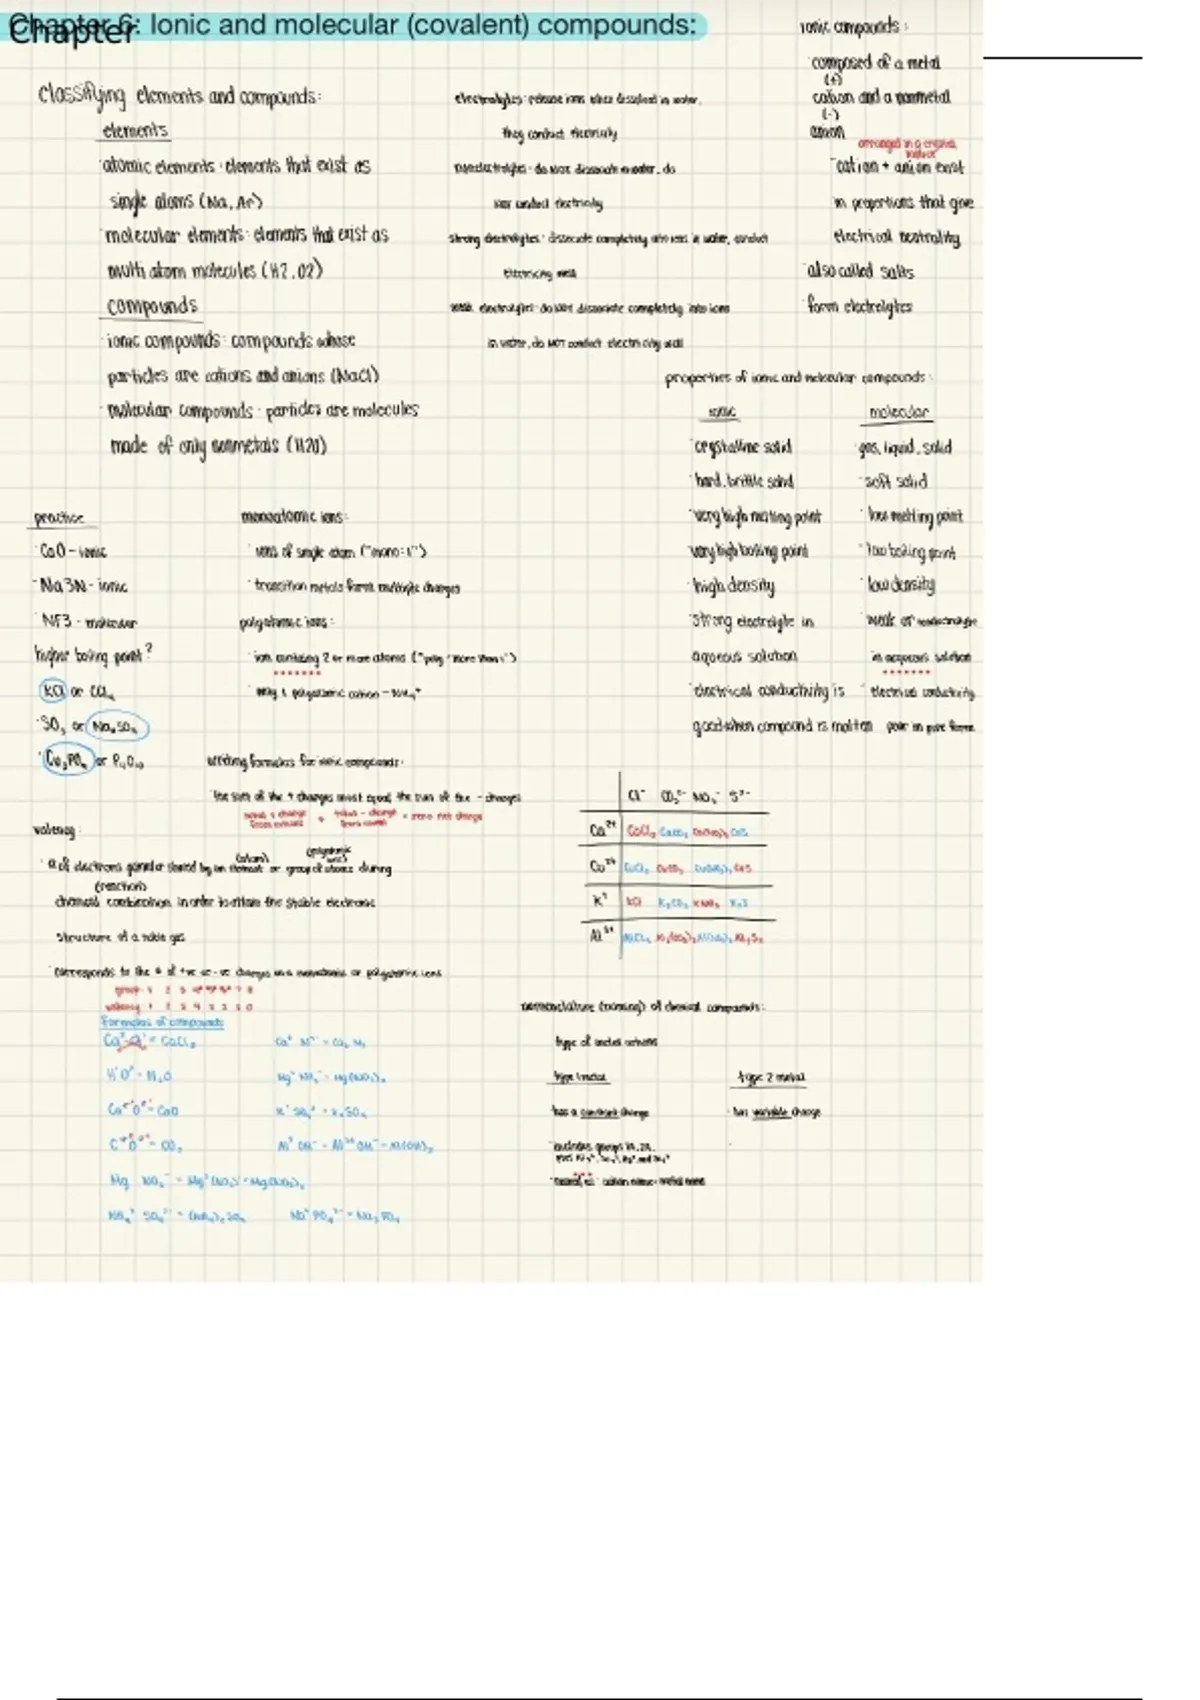 Chapter 6: Ionic and molecular (covalent) compounds:
Chapter
classifying elements and compounds:
elements
atomic elements: elements that exist as
single atoms (Na, Ar)
molecular elements: elements that exist as
multi atom molecules (H2, O2)
compounds
ionic compounds: compounds whose
particles are cations and anions (NaCl)
molecular compounds: particles are molecules
made of only nonmetals (H2O)
electrolytes: release ions when dissolved in water,
they conduct electricity
nonelectrolytes: do NOT dissociate in water, do
NOT conduct electricity
strong electrolytes: dissociate completely into ions in water, conduct
electricity well
weak electrolytes: do NOT dissociate completely into ions
in water, do NOT conduct electricity well
ionic compounds:
composed of a metal
(+)
cation and a nonmetal
(-)
anion
arranged in a
cation + anion exist
in proportions that give
electrical neutrality
also called salts
form electrolytes
properties of ionic and molecular compounds:
ionic
crystalline solid
hard, brittle solid
very high melting point
very high boiling point
high density
strong electrolyte in
aqueous solution
electrical conductivity is
good when compound is molten
molecular
gas, liquid, solid
soft solid
low melting point
low boiling point
low density
weak or nonelectrolyte
in aqueous solution
electrical conductivity
poor in pure forms
practice
CaO - ionic
Na3N - ionic
NF3 - molecular
higher boiling point?
KCl or CCl₄
SO₃ or Na₂SO₄
Cu₃PO₄ or P₄O₁₀
monoatomic ions:
ions of single atom ("mono: 1")
transition metals form multiple charges
polyatomic ions:
ions containing 2 or more atoms ("poly: more than 1")
only 1 polyatomic cation - NH₄⁺
writing formulas for ionic compounds:
the sum of the + charges must equal the sum of the - charges
total + charge + total - charge = zero net charge
valency:
# of electrons gained or shared by an element or group of atoms during
(atom)
(reaction)
chemical combination in order to attain the stable electronic
structure of a noble gas
corresponds to the # of +ve or -ve charges on a monoatomic or polyatomic ions
group 1 2 3 4 5 6 7 8
valency 1 2 3 4 3 2 1 0
formulas of compounds
CaCl₂
H₂O
CaO
CO₂
Cl⁻ CO₃²⁻ NO₃⁻ S²⁻
Ca²⁺ CaCl₂ CaCO₃ Ca(NO₃)₂ CaS
Cu²⁺ CuCl₂ CuCO₃ Cu(NO₃)₂ CuS
K⁺ KCl K₂CO₃ KNO₃ K₂S
Al³⁺ AlCl₃ Al₂(CO₃)₃ Al(NO₃)₃ Al₂S₃
nomenclature (naming) of chemical compounds:
type of metal cations
type 1 metal
has a constant charge
includes groups 1A, 2A,
cation name = metal name
type 2 metal
has variable charge